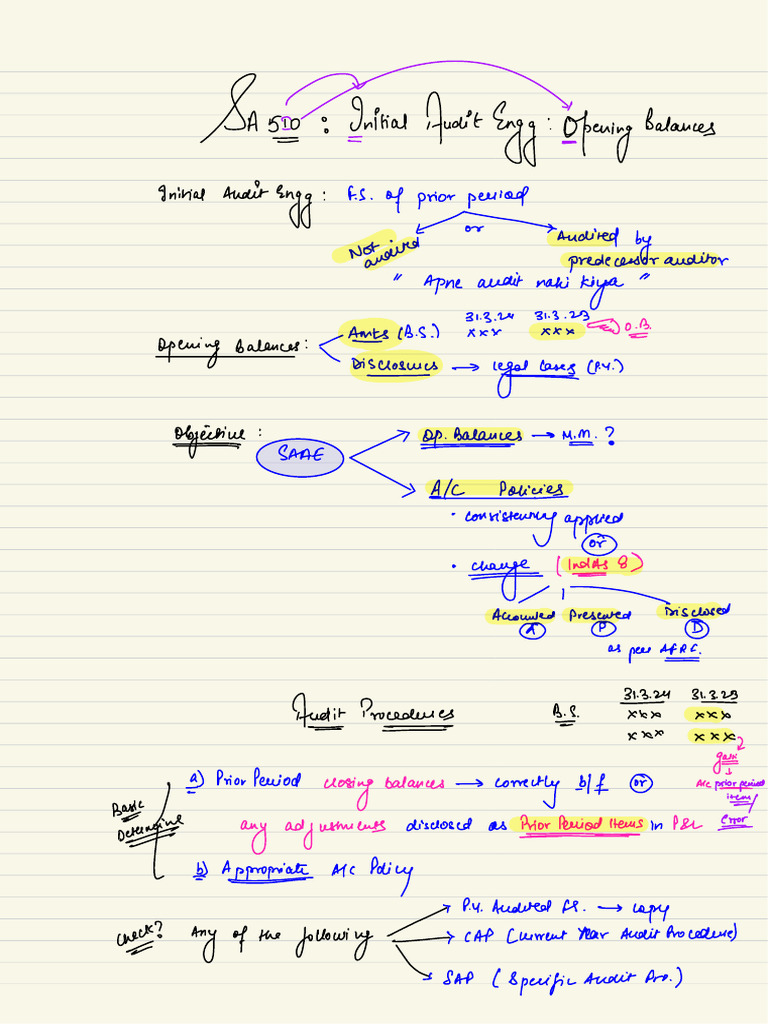 SA 510 : Initial Audit Engg : Opening Balances
Initial Audit Engg : F.S. of prior period
or
Not audited
Audited by predecessor auditor
" Apne audit nahi kiya "
31.3.24 31.3.23
Opening Balances : Amts (B.S.) xxx xxx O.B.
Disclosures → legal cases (P.Y.)
Objective : SAAE
Op. Balances → M.M. ?
A/C Policies
• consistently applied
or
• change (IndAs 8)
Accounted Presented Disclosed
A P D
as per AFRF.
Audit Procedures
B.S. 31.3.24 31.3.23
xxx xxx
xxx xxx
↓
A/c prior period item/ error
Basic Determine
a) Prior Period closing balances → correctly b/f or
any adjustments disclosed as Prior Period Items in P&L
b) Appropriate A/c Policy
Check? Any of the following
P.Y. Audited F.S. → copy
CAP (Current Year Audit Procedure)
SAP (Specific Audit Pro.)